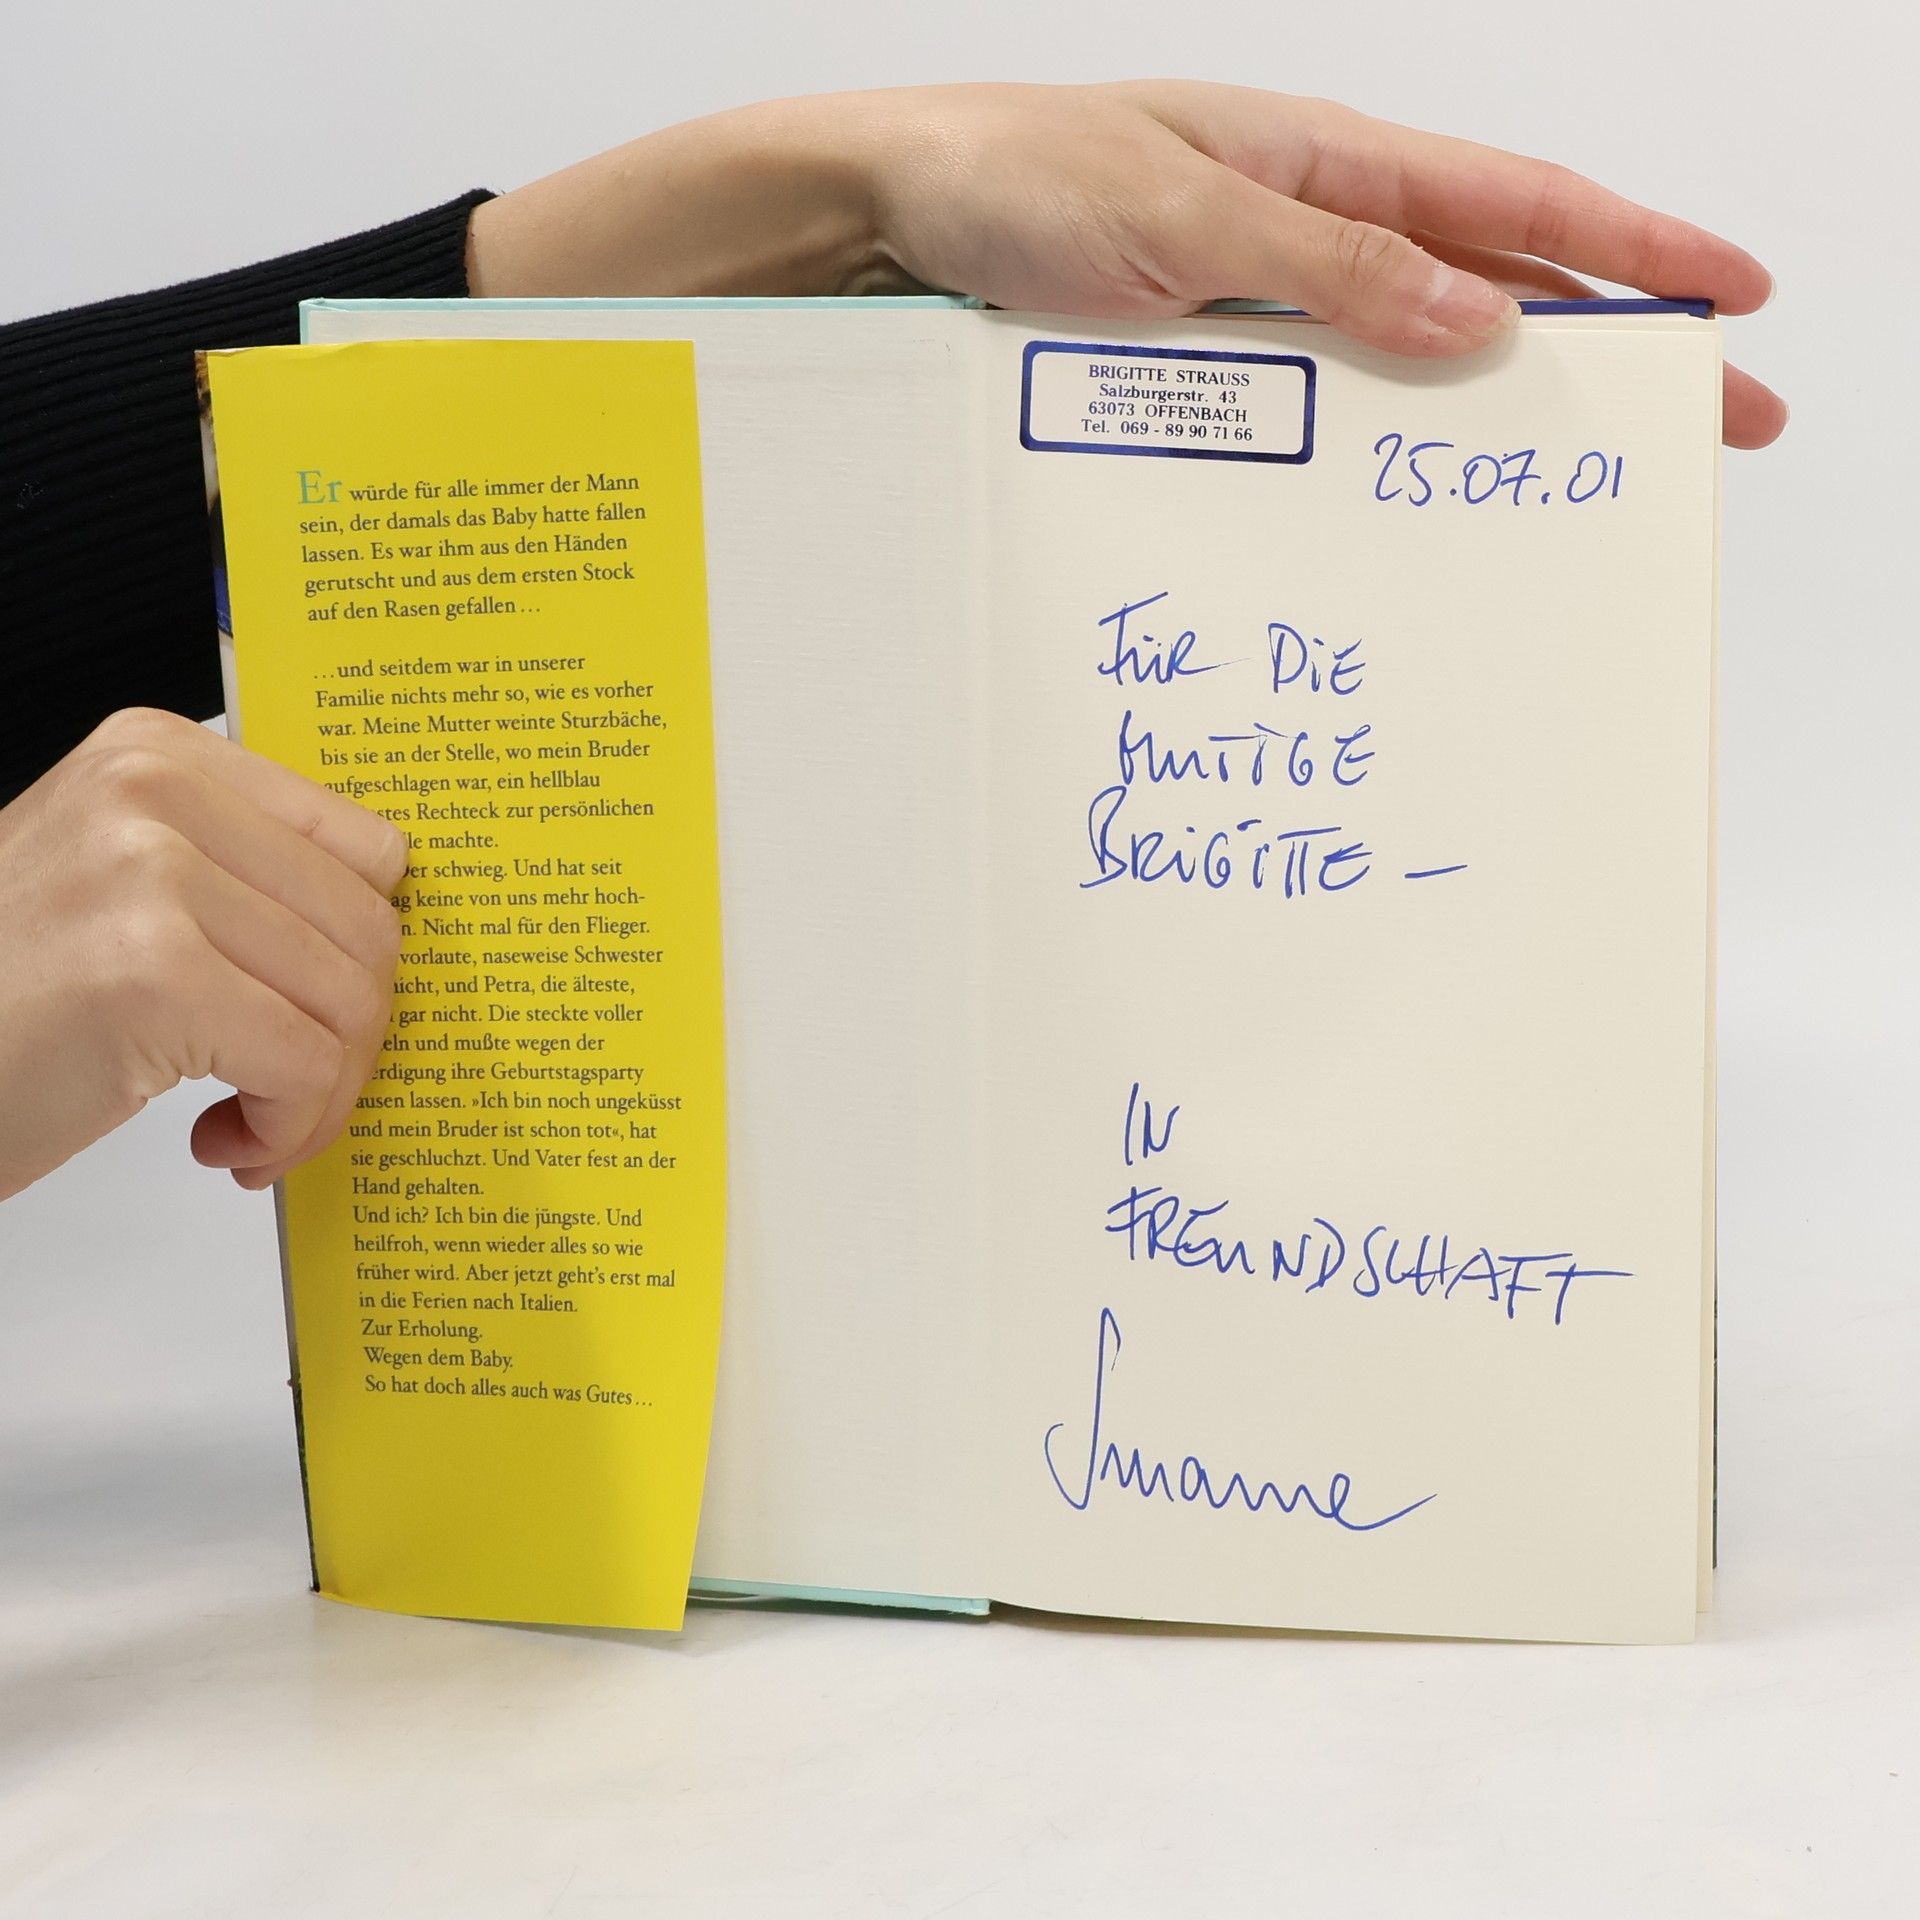 Er würde für alle immer der Mann
sein, der damals das Baby hatte fallen
lassen. Es war ihm aus den Händen
gerutscht und aus dem ersten Stock
auf den Rasen gefallen…
…und seitdem war in unserer
Familie nichts mehr so, wie es vorher
war. Meine Mutter weinte Sturzbäche,
bis sie an der Stelle, wo mein Bruder
aufgeschlagen war, ein hellblau
Rechteck zur persönlichen
machte.
schwieg. Und hat seit
keine von uns mehr hoch-
Nicht mal für den Flieger.
vorlaute, naseweise Schwester
nicht, und Petra, die älteste,
gar nicht. Die steckte voller
und mußte wegen der
ihre Geburtstagsparty
lassen. »Ich bin noch ungeküsst
und mein Bruder ist schon tot«, hat
sie geschluchzt. Und Vater fest an der
Hand gehalten.
Und ich? Ich bin die jüngste. Und
heilfroh, wenn wieder alles so wie
früher wird. Aber jetzt geht's erst mal
in die Ferien nach Italien.
Zur Erholung.
Wegen dem Baby.
So hat doch alles auch was Gutes…
BRIGITTE STRAUSS
Salzburgerstr. 43
63073 OFFENBACH
Tel. 069 - 89 90 71 66
25.07.01
FÜR DIE
MUTIGE
BRIGITTE –
IN
FREUNDSCHAFT
Susanne